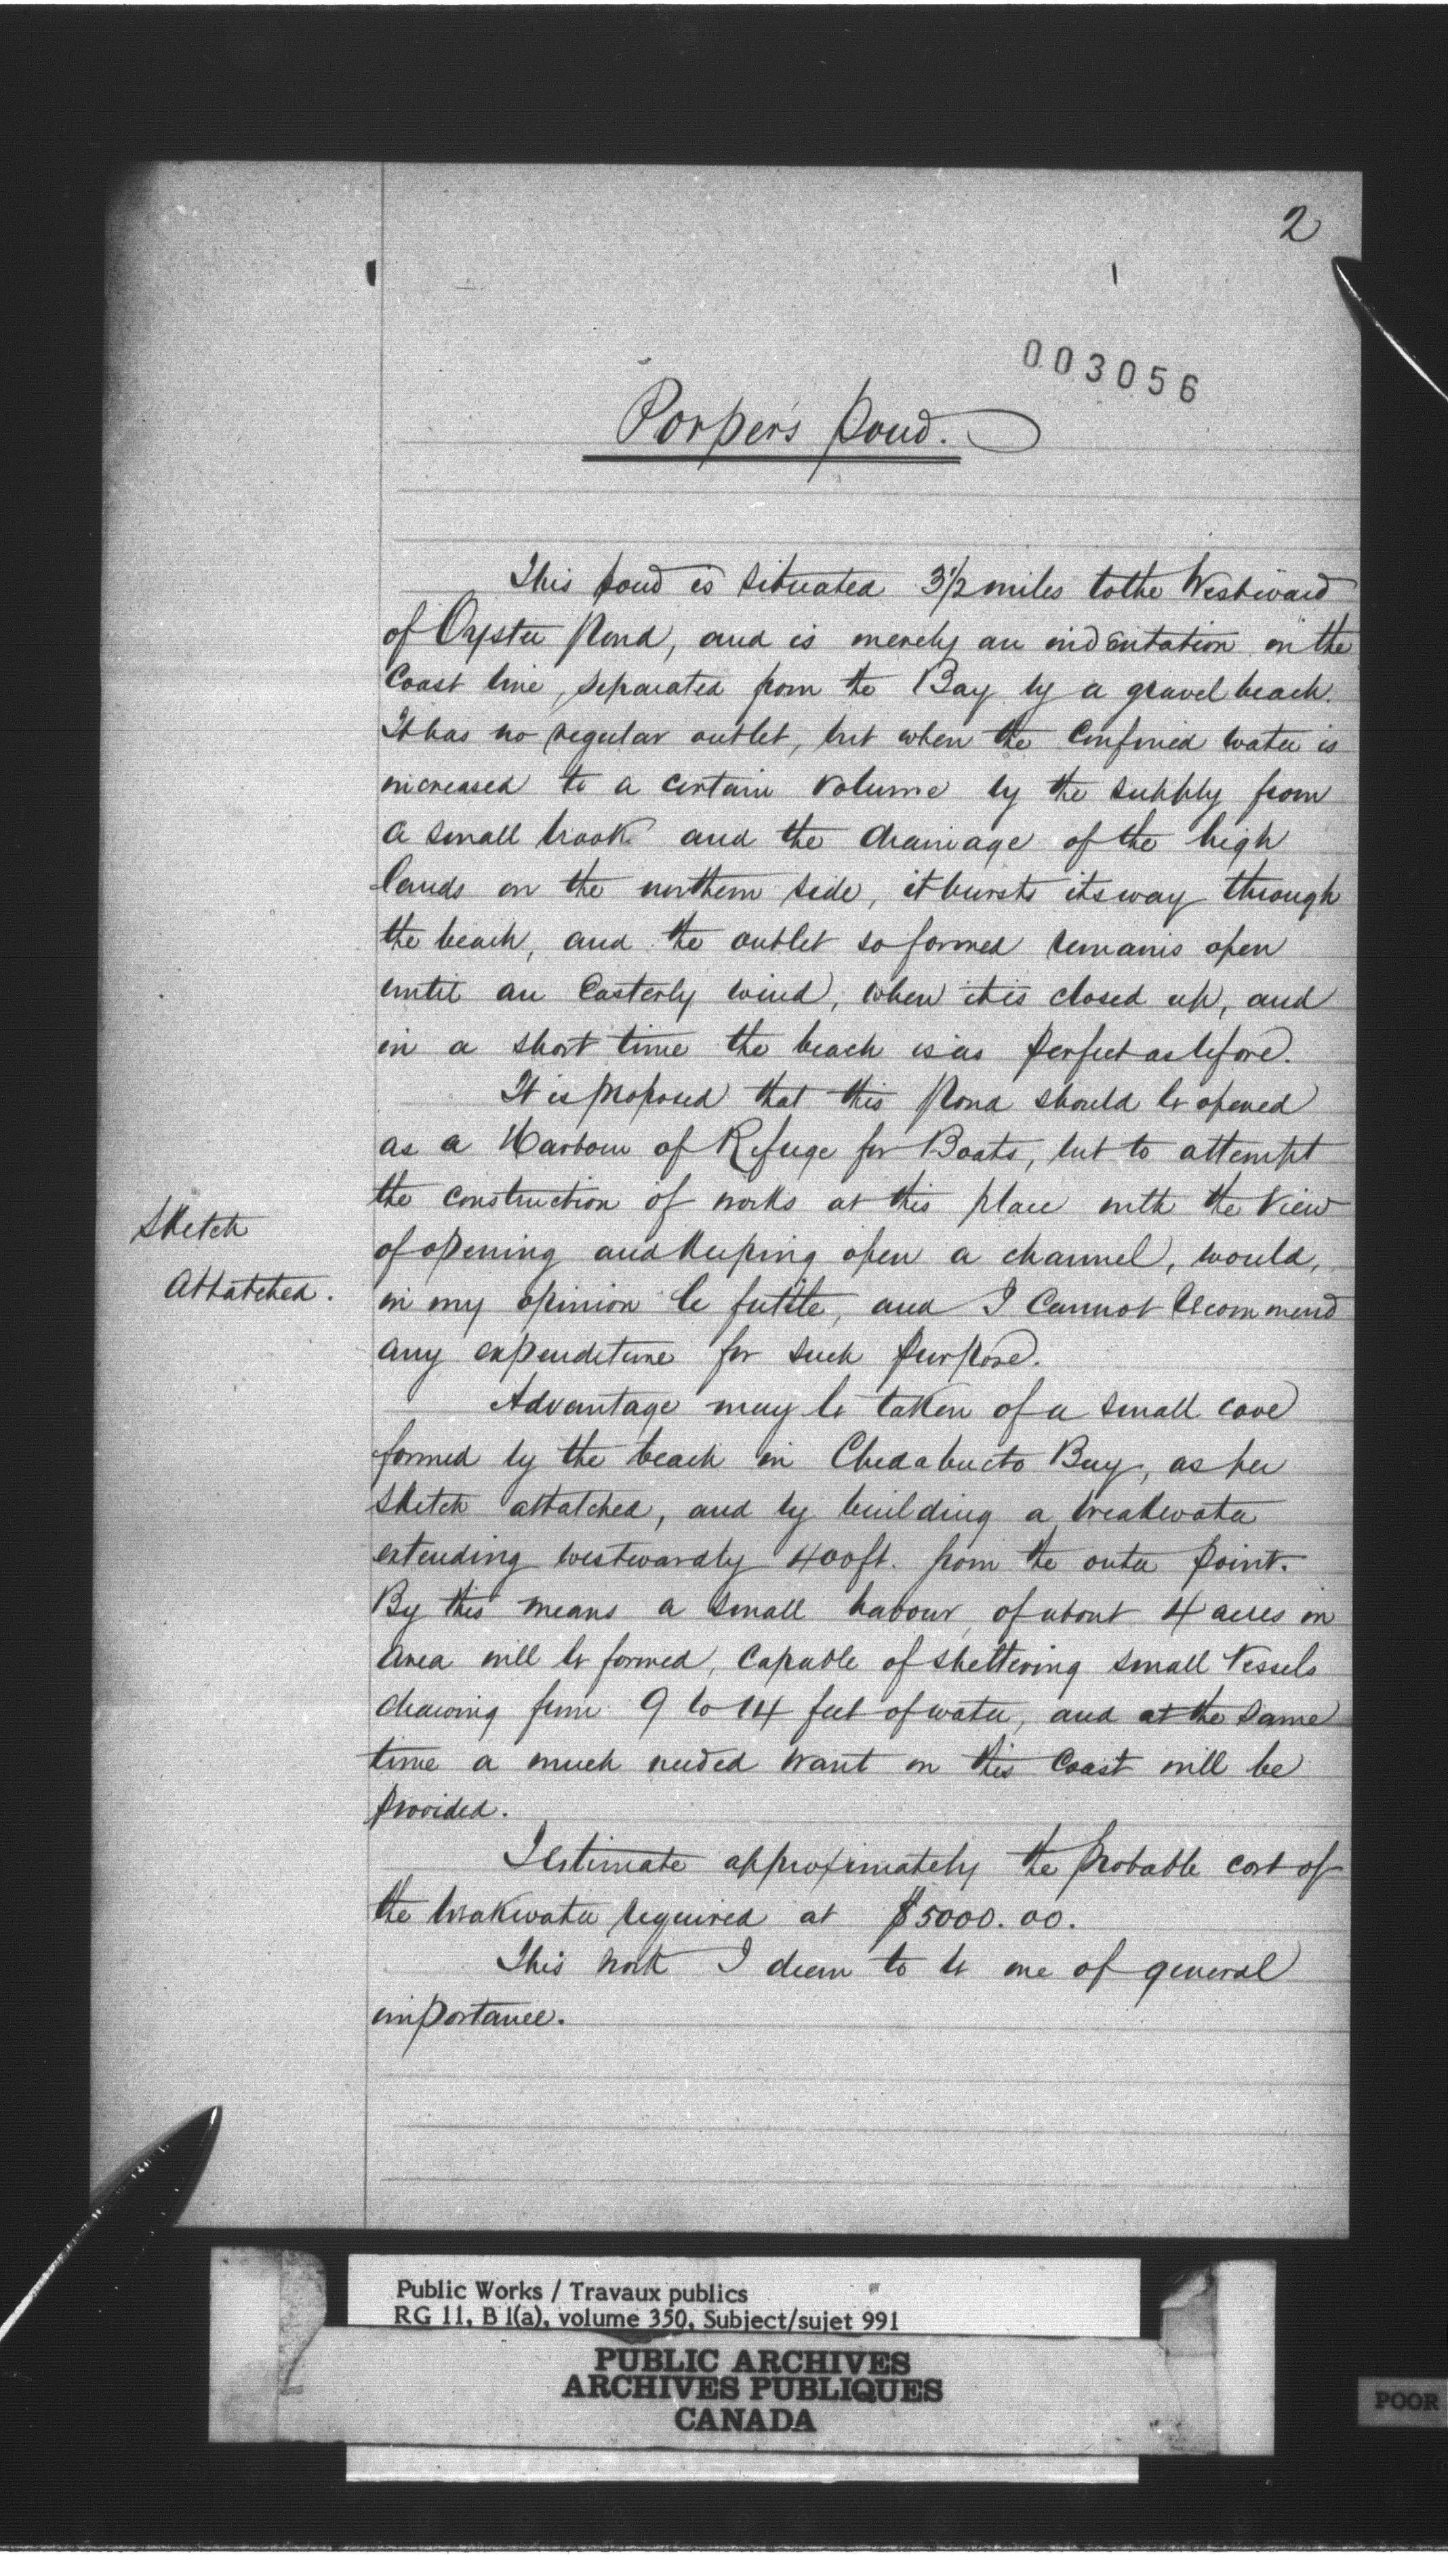 2
003056
Porper's Pond.
This pond is situated 3½ miles to the Westward
of Oyster Pond, and is merely an indentation in the
Coast line, separated from the Bay by a gravel beach.
It has no regular outlet, but when the Confined water is
increased to a certain volume by the supply from
a small brook and the drainage of the high
lands on the northern side, it bursts its way through
the beach, and the outlet so formed remains open
until an Easterly wind, when it is closed up, and
in a short time the beach is as perfect as before.
It is proposed that this Pond should be opened
as a Harbour of Refuge for Boats, but to attempt
the construction of works at this place with the View
of opening and keeping open a channel, would,
in my opinion be futile, and I Cannot recommend
any expenditure for such purpose.
Sketch
Attatched.
Advantage may be taken of a small cove
formed by the beach in Chedabucto Bay, as per
sketch attatched, and by building a breakwater
extending westwardly 400 ft. from the outer point.
By this means a small habour, of about 4 acres in
area will be formed, Capable of sheltering small Vessels
drawing from 9 to 14 feet of water, and at the same
time a much needed want on this Coast will be
provided.
I estimate approximately the probable cost of
the breakwater required at $5000.00.
This work I deem to be one of general
importance.
Public Works / Travaux publics
RG 11, B 1(a), volume 350, Subject/sujet 991
PUBLIC ARCHIVES
ARCHIVES PUBLIQUES
CANADA
POOR